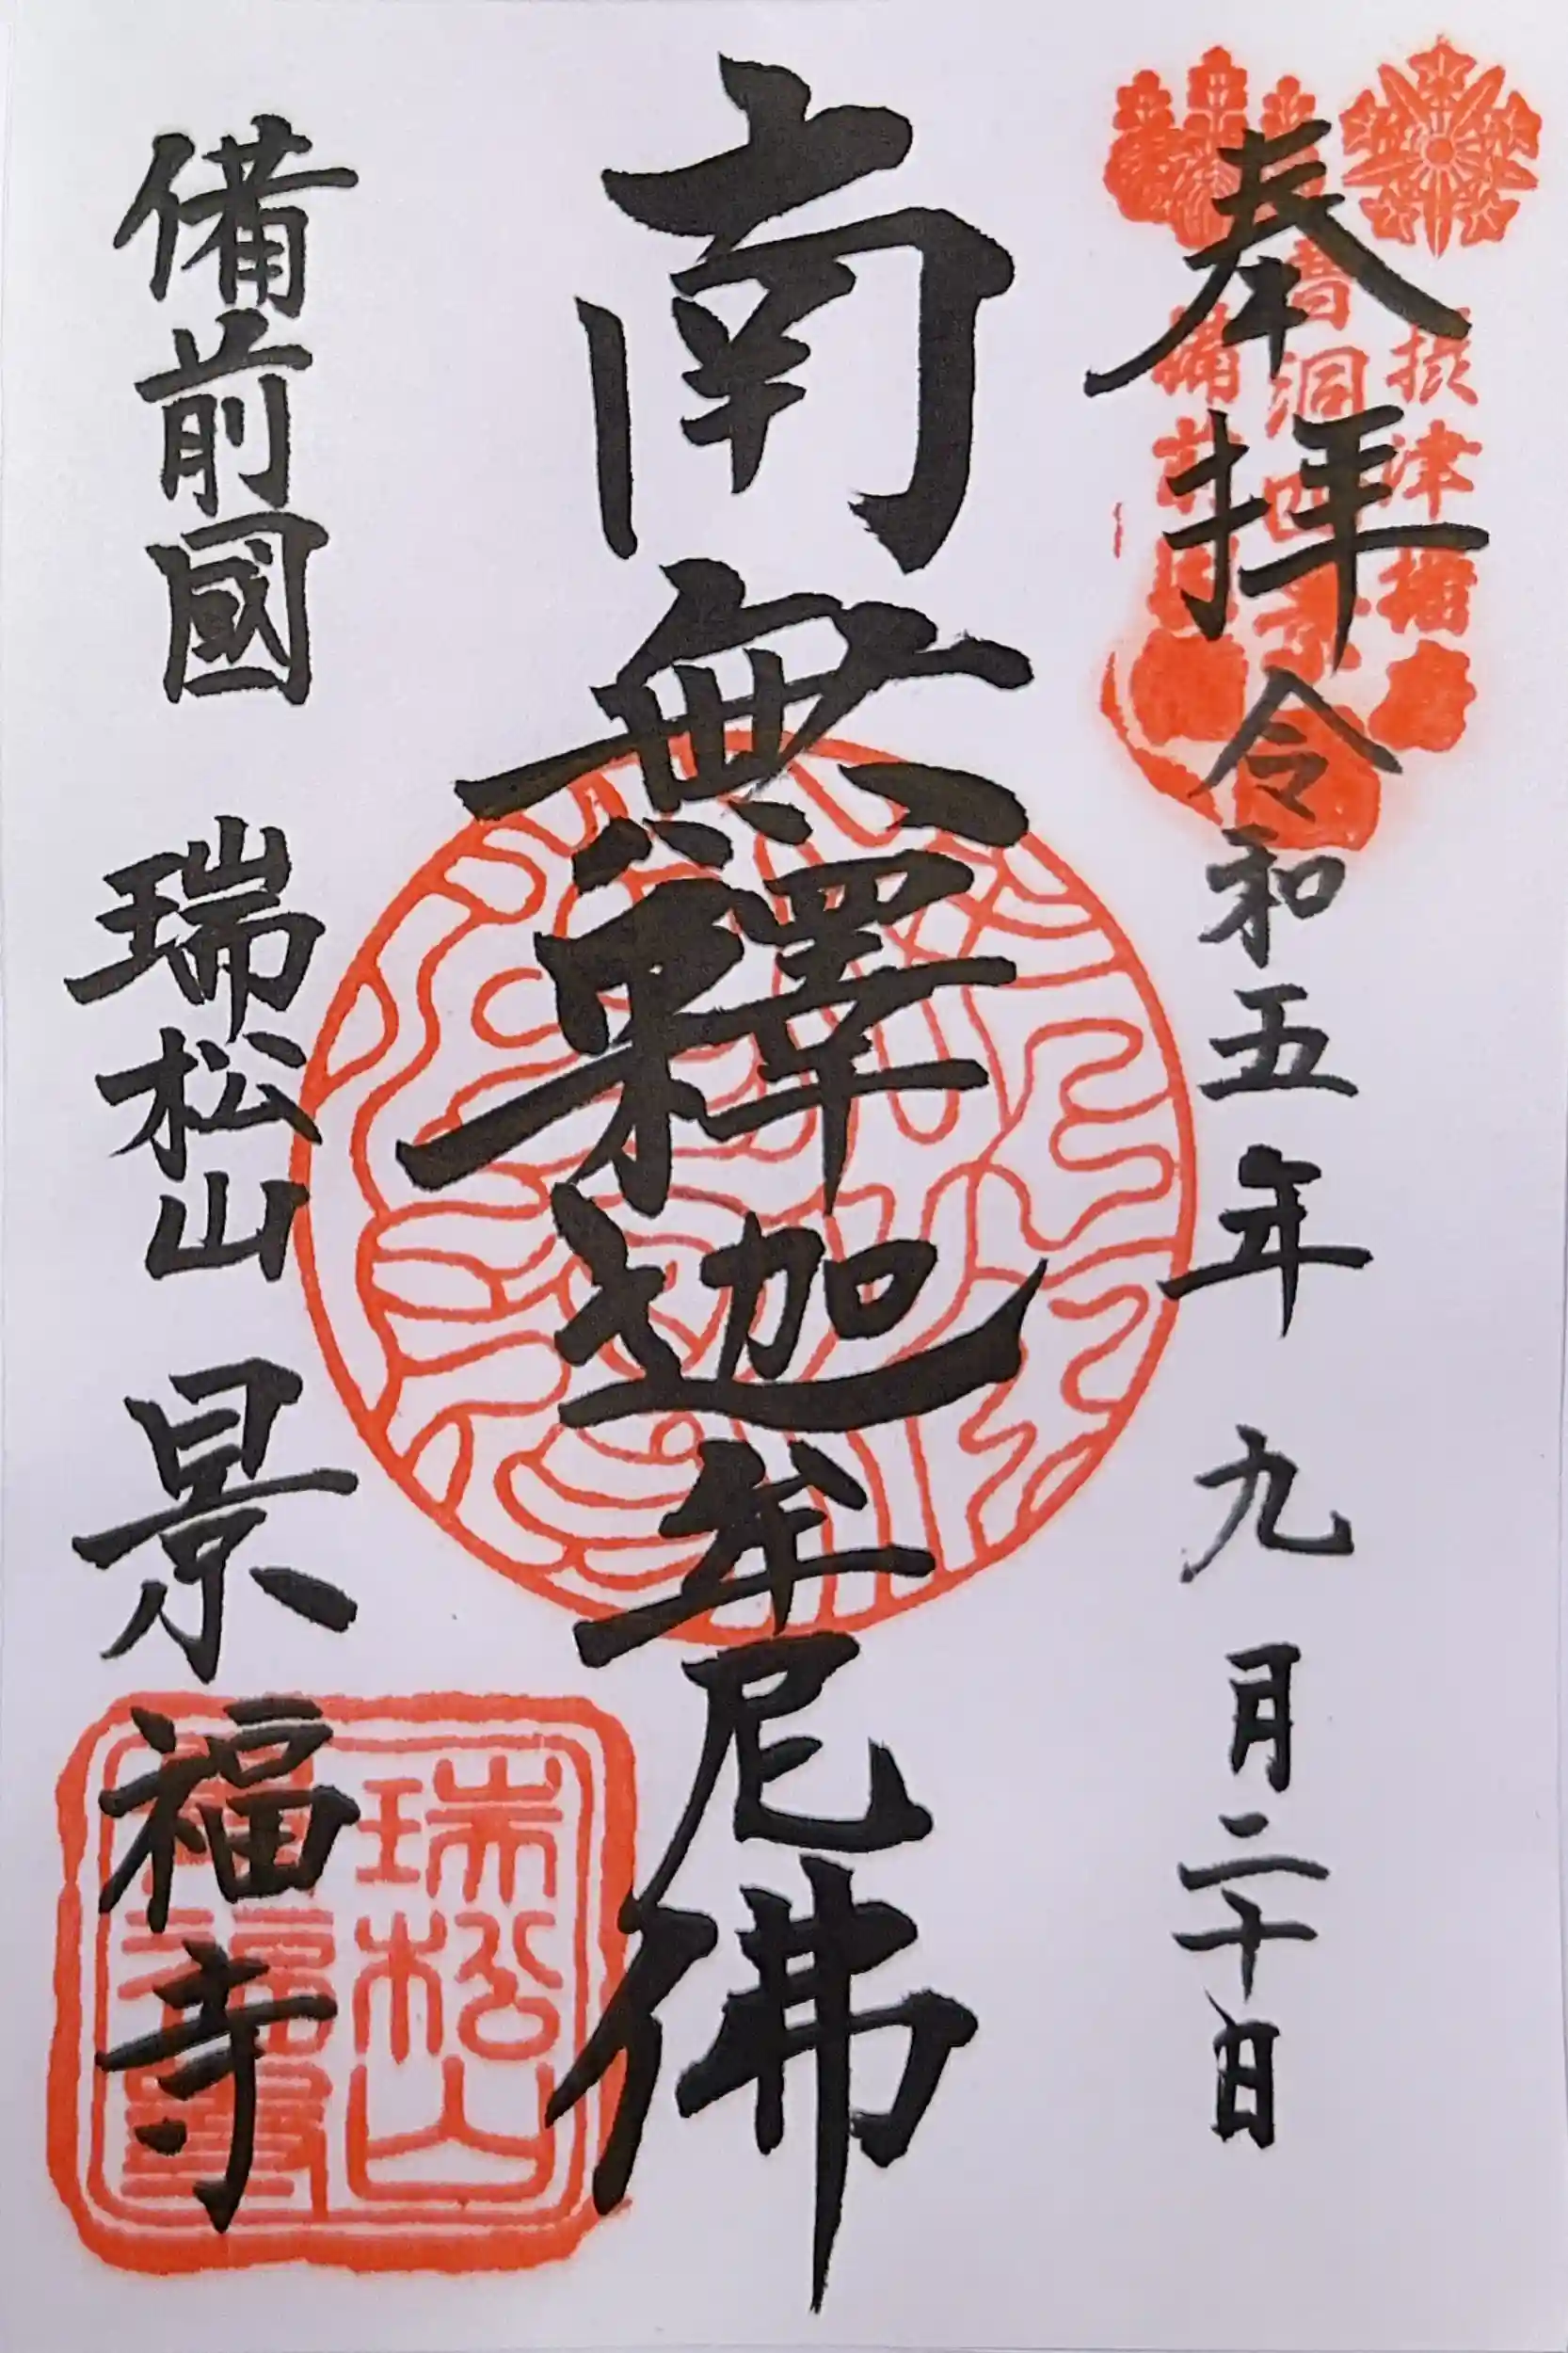 奉拝 令和五年 九月二十日
南無釋迦牟尼佛
備前國 瑞松山 景福寺
瑞松山